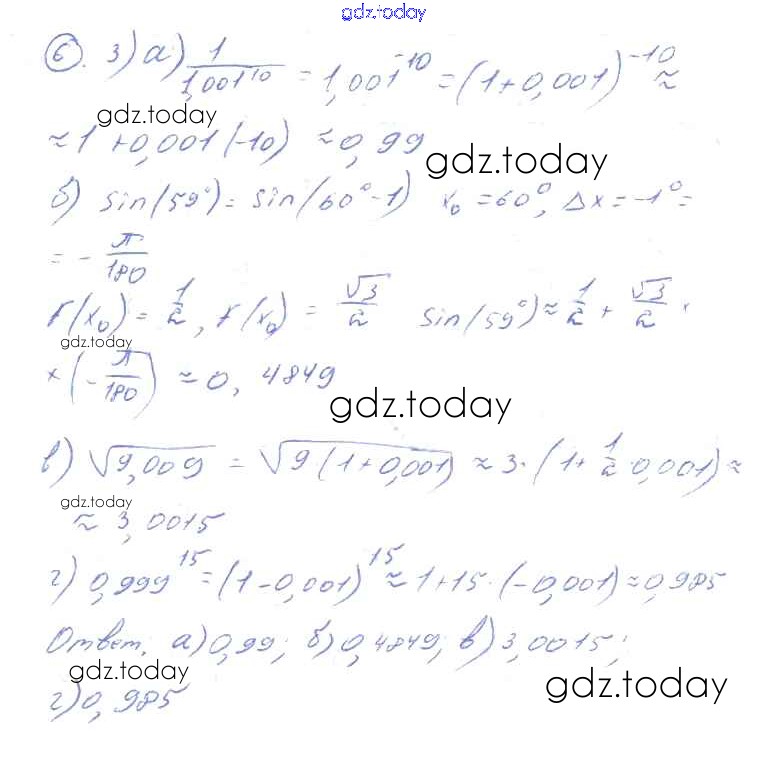 gdz.today
6. 3) а) 1/1,001^10 = 1,001^-10 = (1+0,001)^-10 ≈
gdz.today
≈ 1 + 0,001(-10) ≈ 0,99
gdz.today
б) sin(59°) = sin(60° - 1) x₀ = 60°, Δx = -1° =
= - π/180
f(x₀) = 1/2, f(x₀) = √3/2 sin(59°) ≈ 1/2 + √3/2 ·
gdz.today
× (- π/180) ≈ 0,4849
gdz.today
в) √9,009 = √9(1+0,001) ≈ 3·(1+ 1/2·0,001) ≈
gdz.today
≈ 3,0015
г) 0,999^15 = (1-0,001)^15 ≈ 1+15·(-0,001) ≈ 0,985
Ответ, а) 0,99; б) 0,4849; в) 3,0015;
gdz.today
gdz.today
г) 0,985
gdz.today